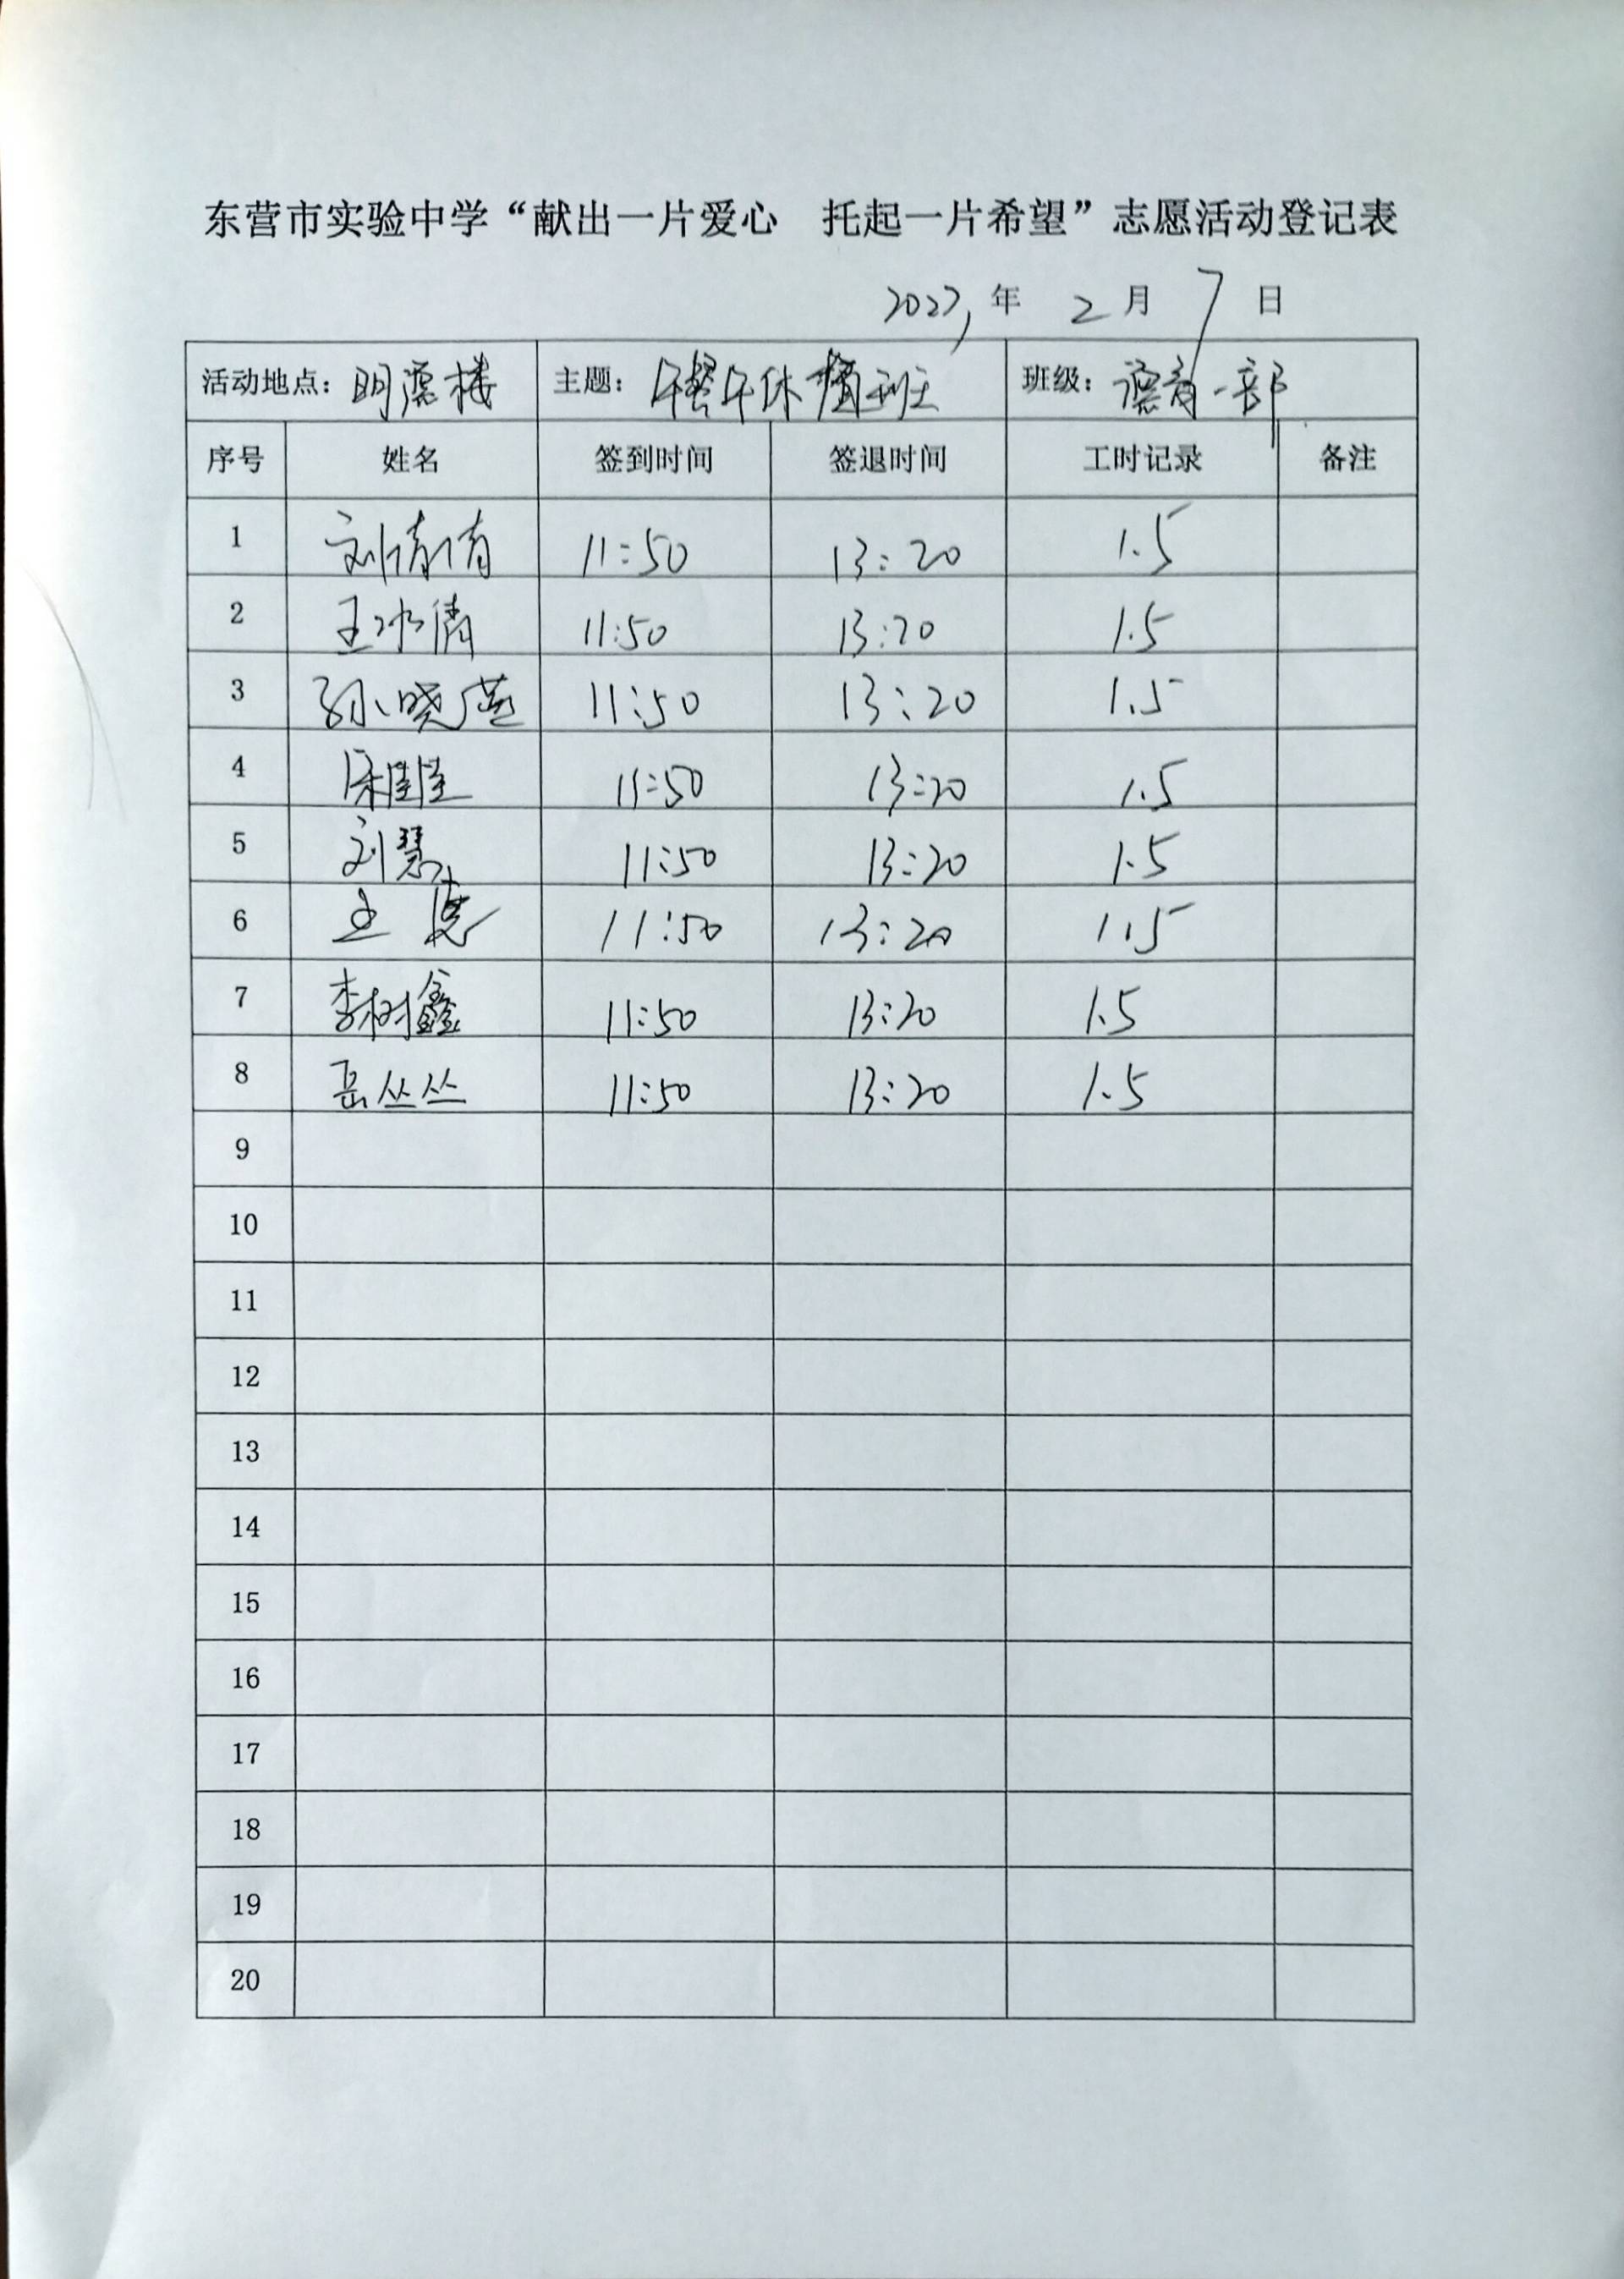 东营市实验中学“献出一片爱心 托起一片希望”志愿活动登记表
年 2 月 7 日
活动地点: 明德楼 主题: 午餐午休值班 班级: 德育一部
序号 姓名 签到时间 签退时间 工时记录 备注
1 刘倩倩 11:50 13:20 1.5
2 王冰倩 11:50 13:20 1.5
3 孙晓燕 11:50 13:20 1.5
4 宋佳佳 11:50 13:20 1.5
5 刘慧 11:50 13:20 1.5
6 王 11:50 13:20 1.5
7 李树鑫 11:50 13:20 1.5
8 岳丛丛 11:50 13:20 1.5
9
10
11
12
13
14
15
16
17
18
19
20